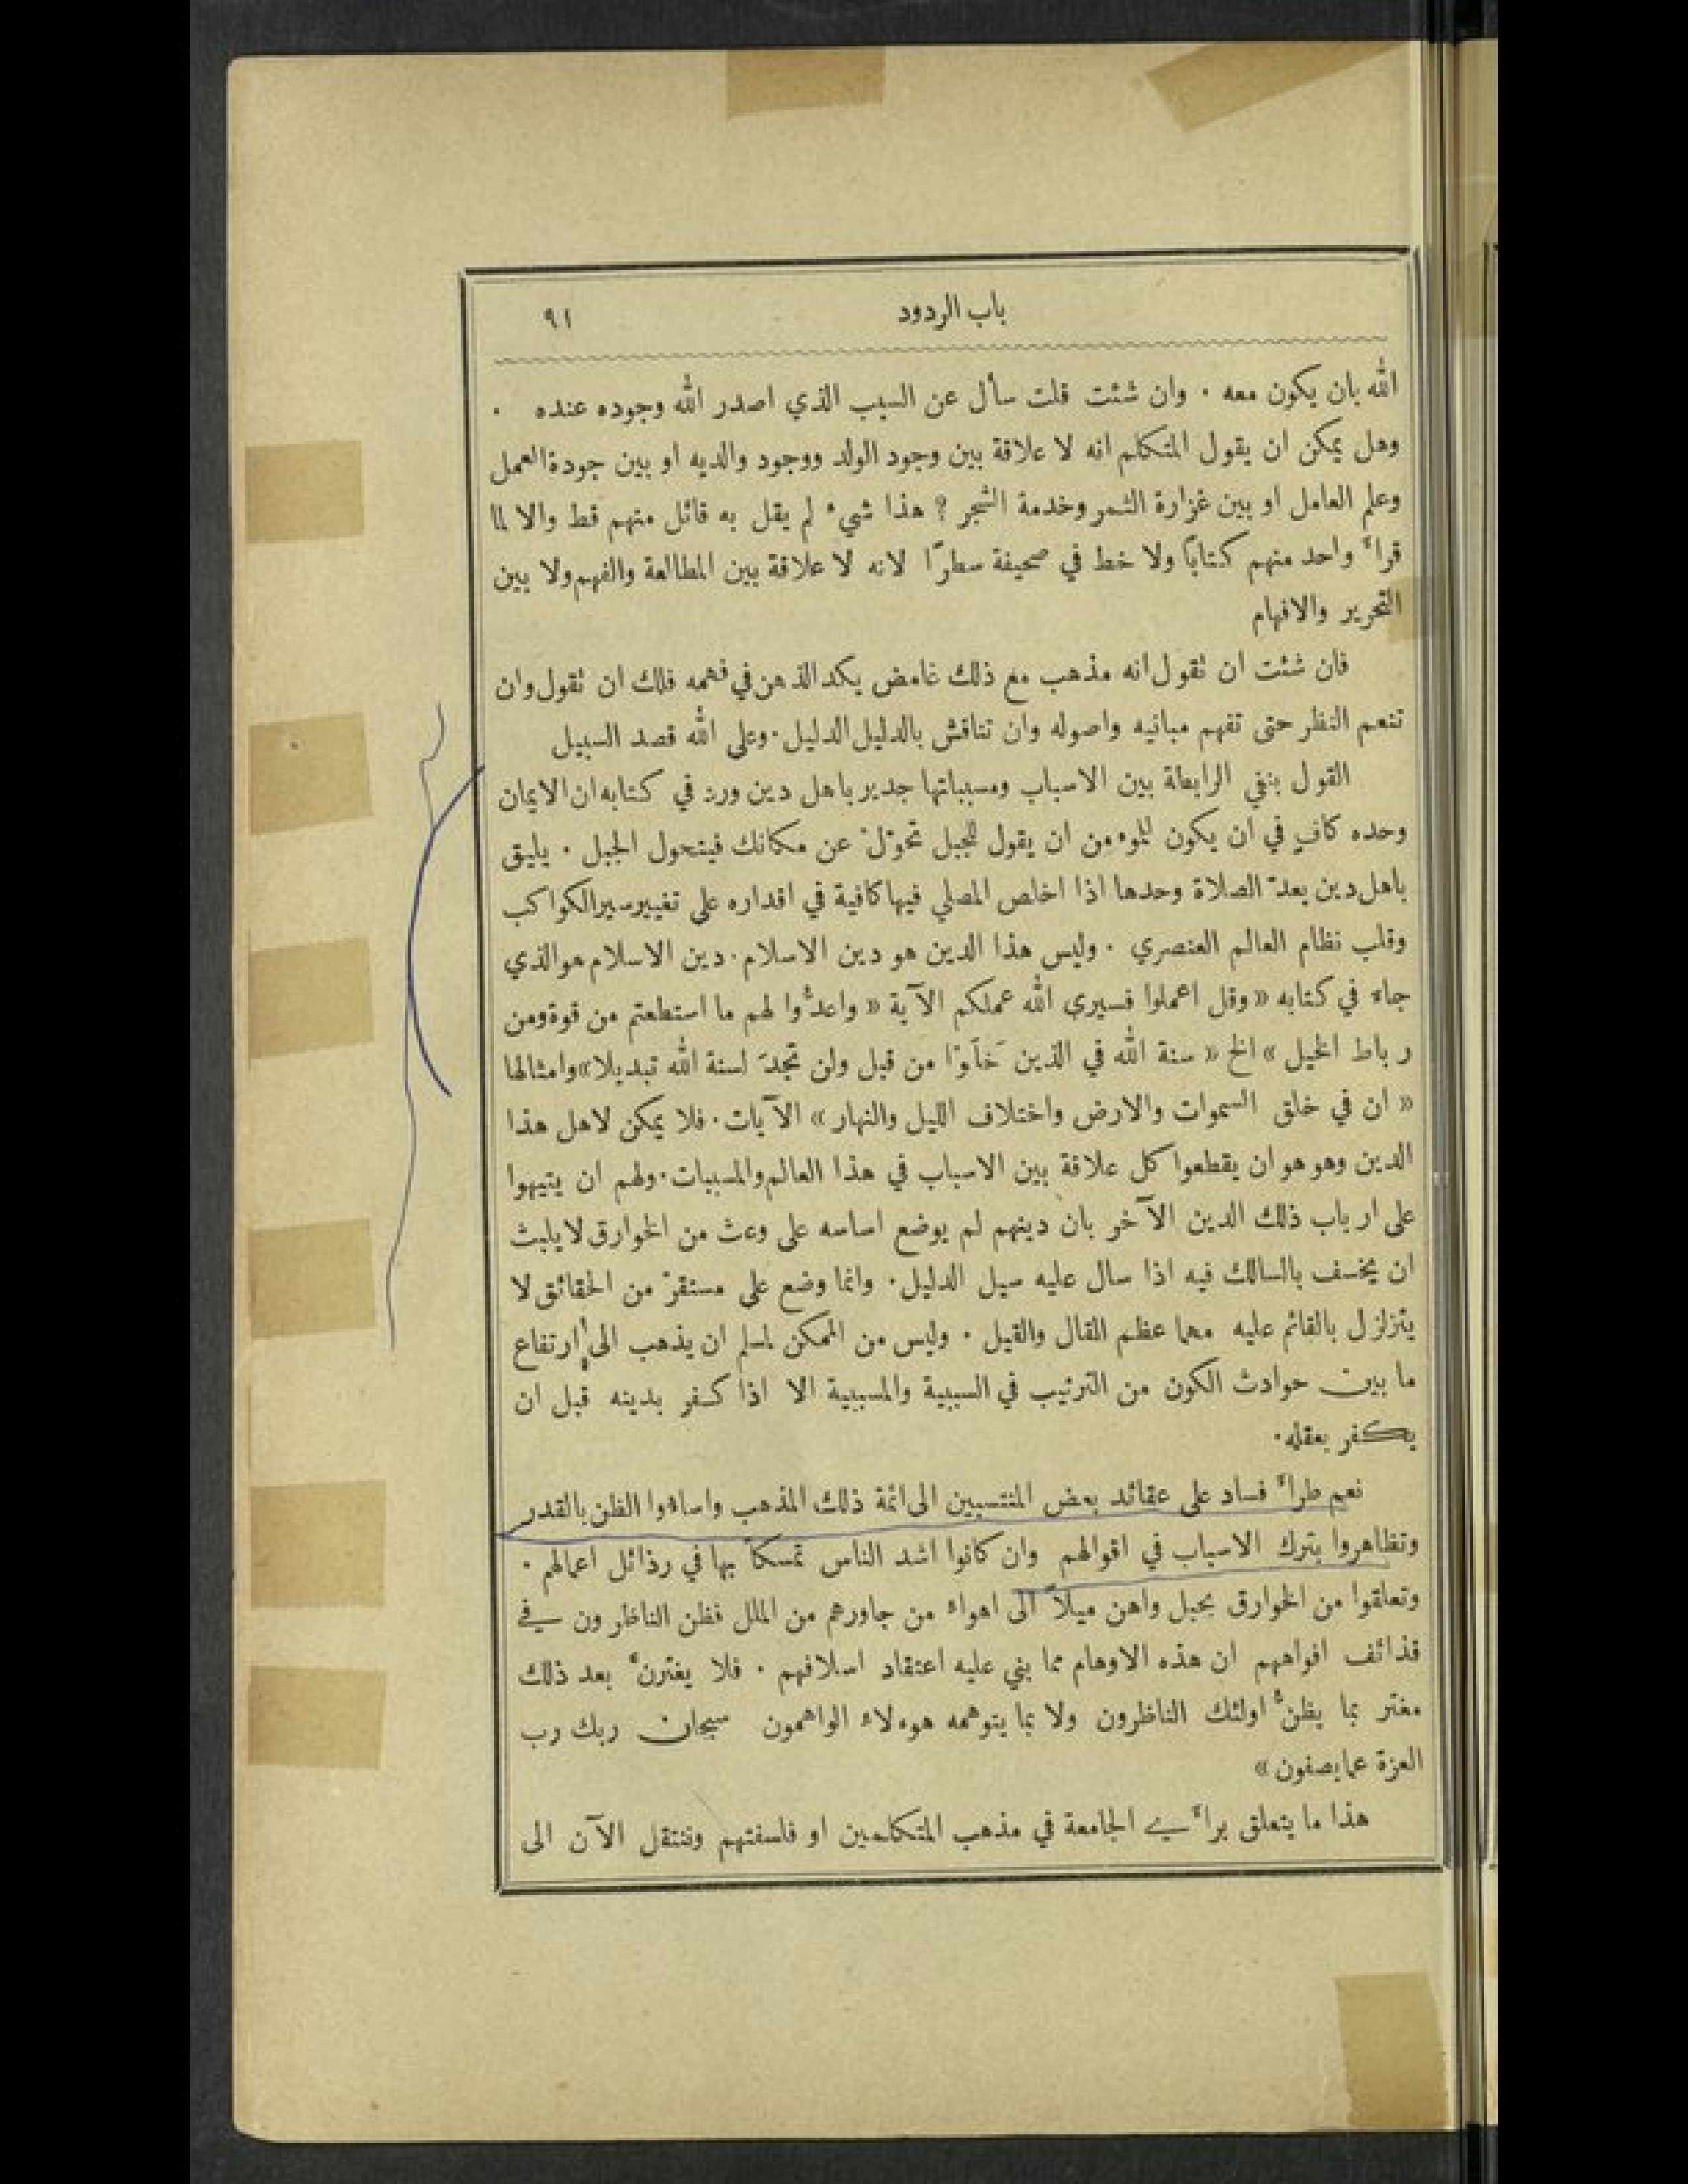 باب الردود
٩١
الله بان يكون معه . وان شئت قلت سأل عن السبب الذي اصدر الله وجوده عنده .
وهل يمكن ان يقول المتكلم انه لا علاقة بين وجود الولد ووجود والديه او بين جودة العمل
وعلم العامل او بين غزارة الثمر وخدمة الشجر ؟ هذا شيء لم يقل به قائل منهم قط والا لما
قرأ واحد منهم كتاباً ولا خط في صحيفة سطرًا لانه لا علاقة بين المطالعة والفهم ولا بين
التحرير والافهام
فان شئت ان نقول انه مذهب مع ذلك غامض يكد الذهن في فهمه فلك ان نقول وان
تنعم النظر حتى تفهم مبانيه واصوله وان تناقش بالدليل الدليل . وعلى الله قصد السبيل
القول بنفي الرابطة بين الاسباب ومسبباتها جدير باهل دين ورد في كتابه ان الايمان
وحده كافٍ في ان يكون للموءمن ان يقول للجبل تحوّل عن مكانك فيتحول الجبل . يليق
باهل دين يعدّ الصلاة وحدها اذا اخلص المصلي فيها كافية في اقداره على تغيير سير الكواكب
وقلب نظام العالم العنصري . وليس هذا الدين هو دين الاسلام . دين الاسلام هو الذي
جاء في كتابه « وقل اعملوا فسيرى الله عملكم الآية « واعدُّوا لهم ما استطعتم من قوة ومن
رباط الخيل » الخ « سنة الله في الذين خَلَوْا من قبل ولن تجدَ لسنة الله تبديلا » وامثالها
« ان في خلق السموات والارض واختلاف الليل والنهار » الآيات . فلا يمكن لاهل هذا
الدين وهو هو ان يقطعوا كل علاقة بين الاسباب في هذا العالم والمسببات . ولهم ان يتيهوا
على ارباب ذلك الدين الآخر بان دينهم لم يوضع اساسه على وعث من الخوارق لا يلبث
ان يخسف بالسالك فيه اذا سال عليه سيل الدليل . وانما وضع على مستقرّ من الحقائق لا
يتزلزل بالقائم عليه مهما عظم القال والقيل . وليس من الممكن لمسلم ان يذهب الى ارتفاع
ما بين حوادث الكون من الترتيب في السببية والمسببية الا اذا كفر بدينه قبل ان
يكفر بعقله .
نعم طرأ فساد على عقائد بعض المنتسبين الى ائمة ذلك المذهب واساءوا الظن بالقدر
وتظاهروا بترك الاسباب في اقوالهم وان كانوا اشد الناس تمسكاً بها في رذائل اعمالهم .
وتعلقوا من الخوارق بحبل واهن ميلاً الى اهواء من جاورهم من الملل فظن الناظرون في
قذائف افواههم ان هذه الاوهام مما بني عليه اعتقاد اسلافهم . فلا يغترنّ بعد ذلك
مغتر بما يظنّ اولئك الناظرون ولا بما يتوهمه هوءلاء الواهمون سبحان ربك رب
العزة عما يصفون »
هذا ما يتعلق برأي الجامعة في مذهب المتكلمين او فلسفتهم وننتقل الآن الى